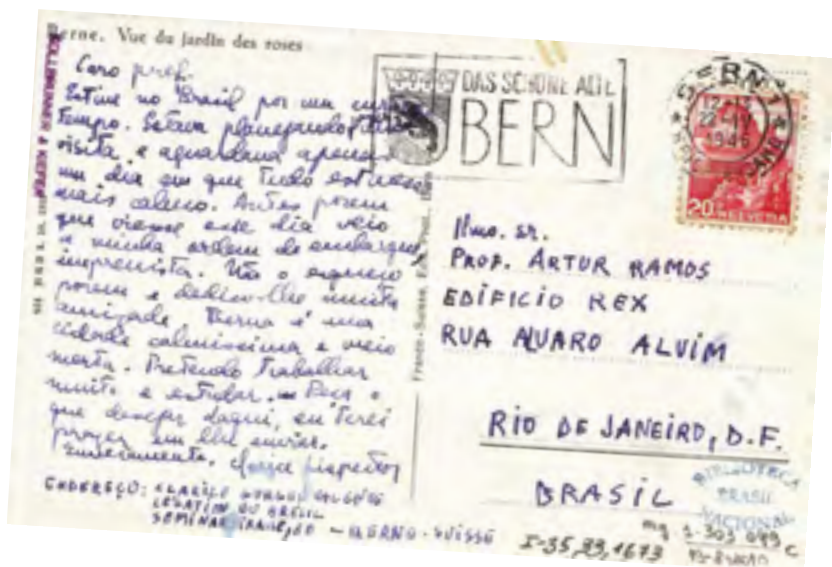 Berne. Vue du jardin des roses
Caro prof.
Estive no Brasil por um curto
tempo. Estava planejando
visita, e aguardava apenas
um dia em que tudo estivesse
mais calmo. Antes porem
que viesse esse dia veio
a minha ordem de embarque,
imprevista. Não o esqueço
porem e dedico-lhe muita
amizade. Berna é uma
cidade calmissima e meio
morta. Pretendo trabalhar
muito e estudar. — Peça o
que desejar daqui, eu terei
prazer em lhe enviar.
Sinceramente. Clarice Lispector
ENDEREÇO: CLARICE GURGEL VALENTE
LEGATION DU BRÉSIL
SEMINARSTRASSE, 30 — BERNE - SUISSE
DAS SCHÖNE ALTE
BERN
BERN 1
22. IV
1946
20 HELVETIA
Ilmo. sr.
PROF. ARTUR RAMOS
EDIFICIO REX
RUA ALVARO ALVIM
RIO DE JANEIRO, D.F.
BRASIL
BIBLIOTECA
BRASIL
NACIONAL
I-35,33,1673